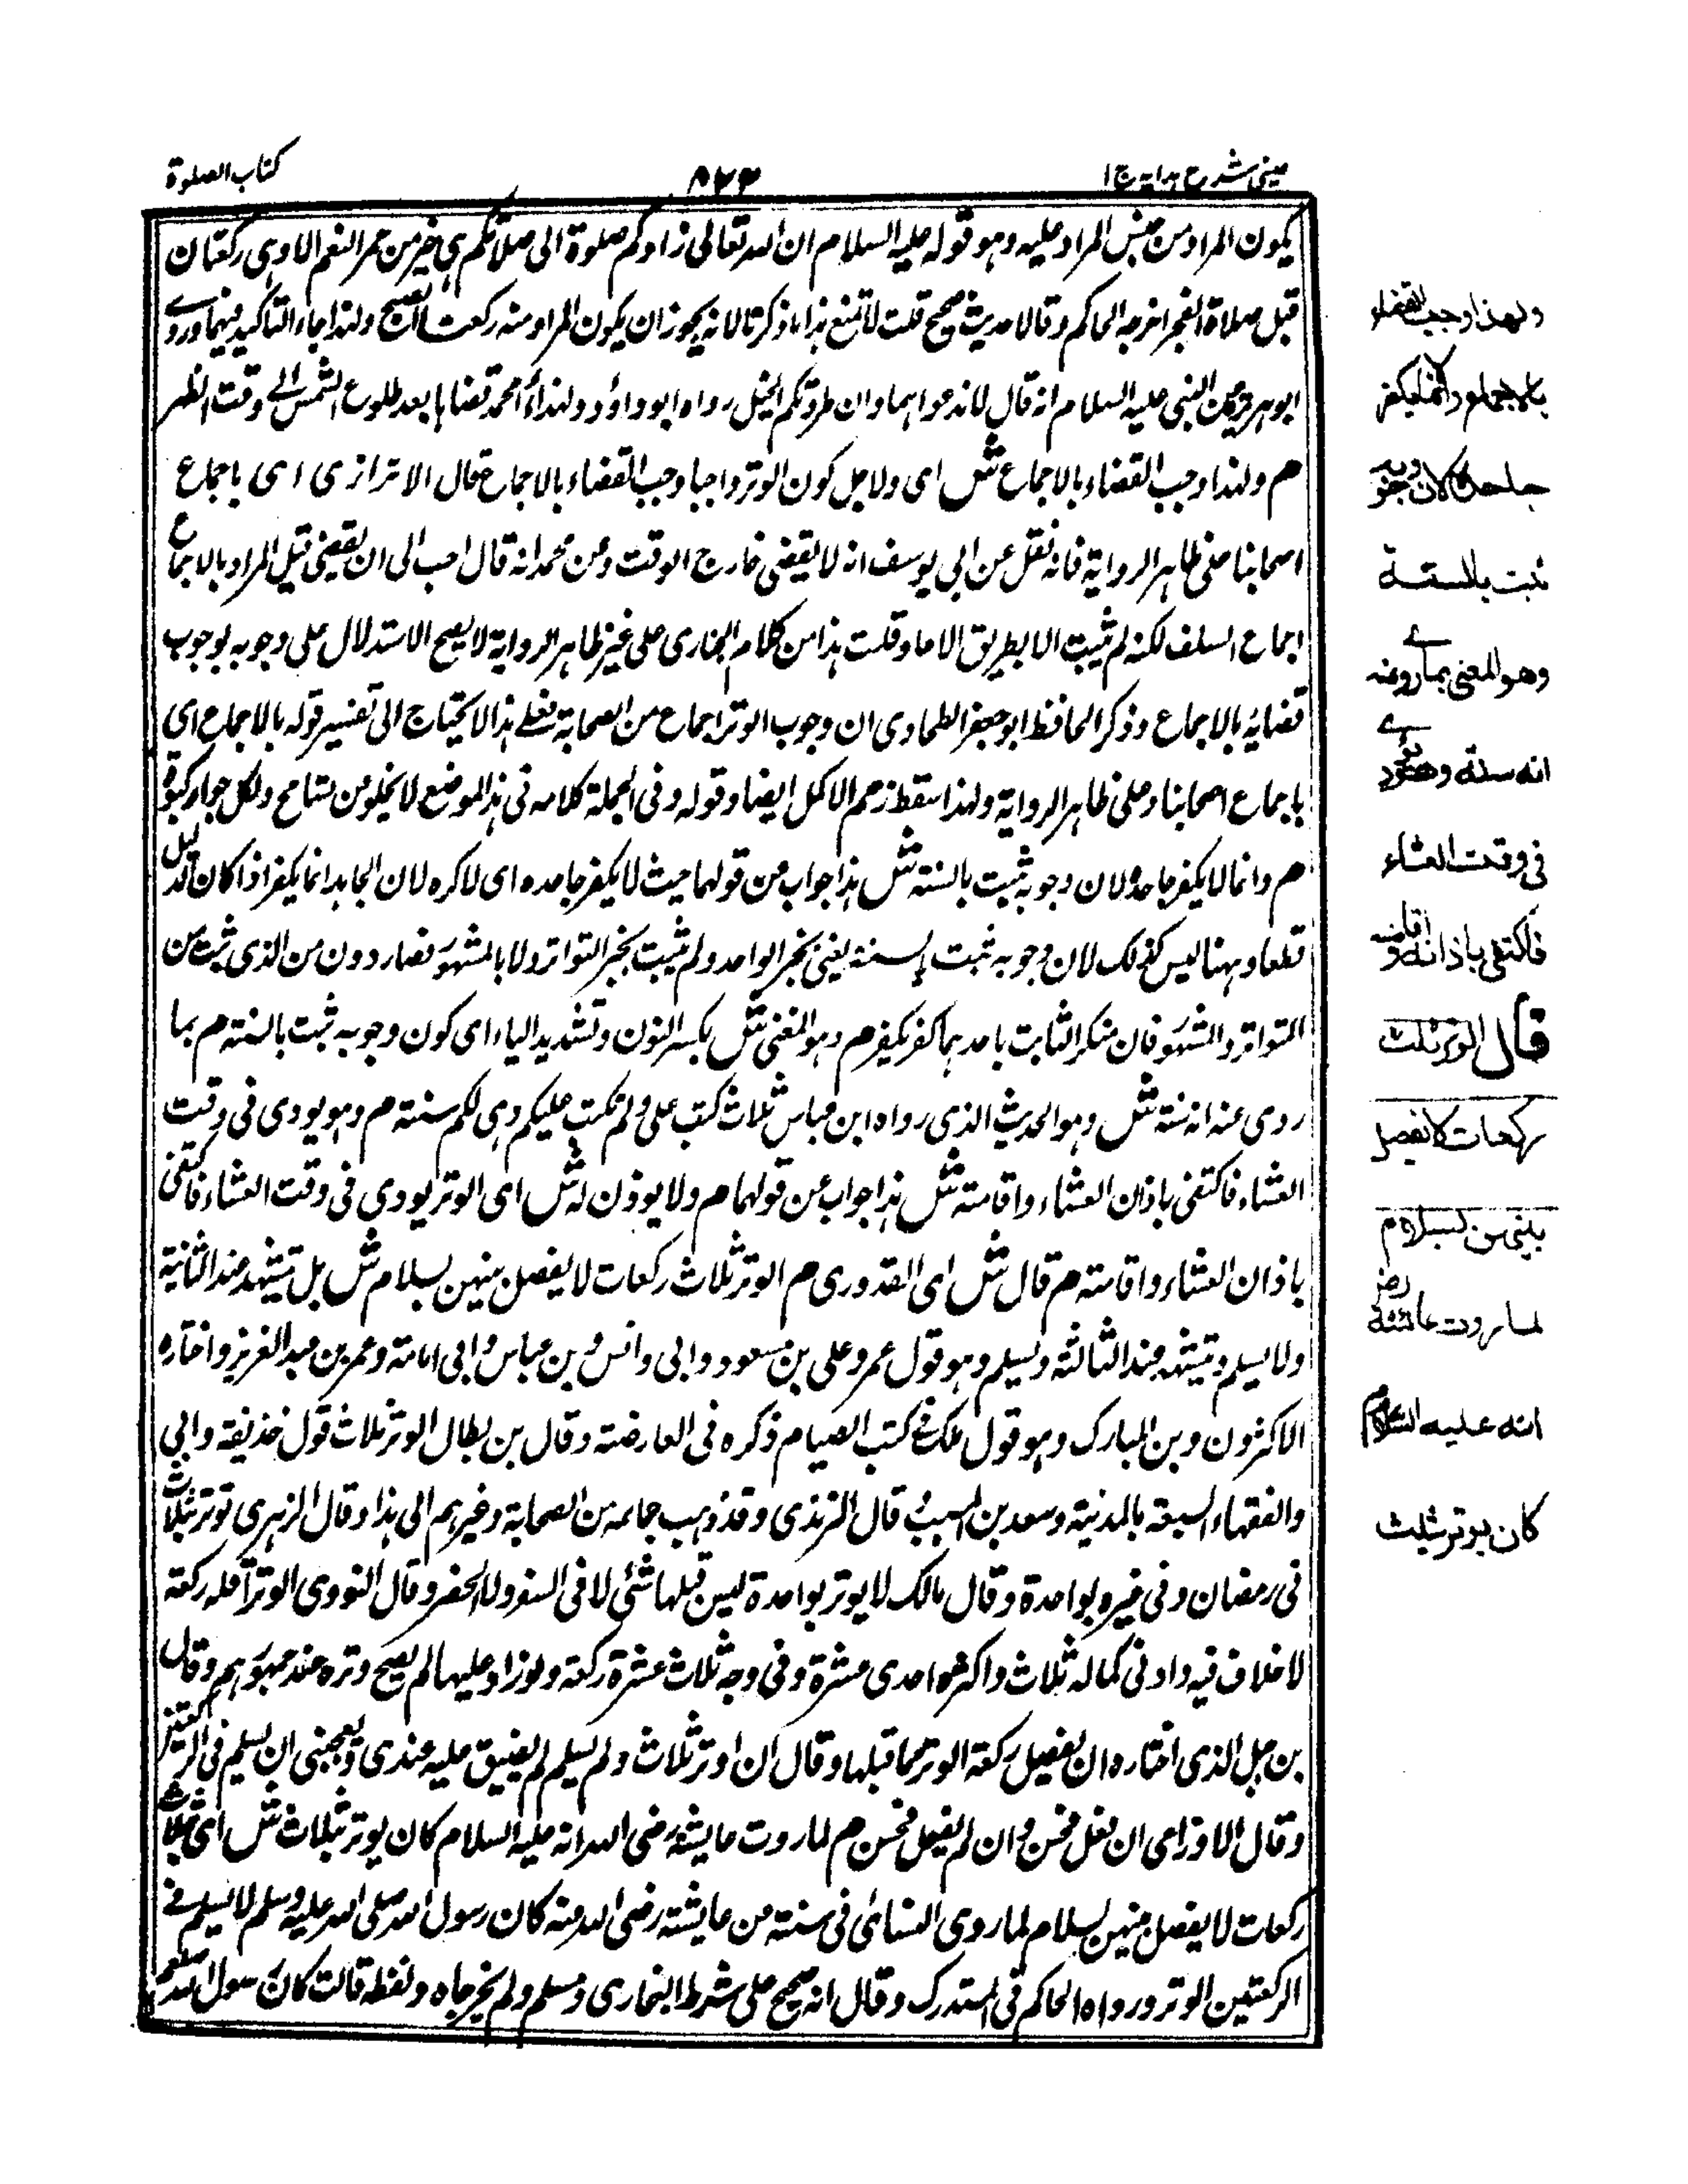 عینی شرح ہدایہ ج ا
۸۲۴
کتاب الصلوة
یکون المراد من جنس المراد علیہ وہو قولہ علیہ السلام ان اللہ تعالی زادکم صلوة الی صلاتکم ہی خیر من حمر النعم الا وہی رکعتان
قبل صلاة الفجر اخرجہ الحاکم وقالا حدیث صحیح قلت لا تمنع ہذا ما ذکرتا لانہ یجوز ان یکون المراد منہ رکعت الصبح ولہذا جاء التاکید فیہما وروے
ابو ہریرة عن النبی علیہ السلام انہ قال لا تدعوا ہما وان طردتکم الخیل رواہ ابو داؤد ولہذا محمد قضاہا بعد طلوع الشمس الے وقت الظہر
م ولہذا وجب القضاء بالاجماع ش ای ولاجل کون الوتر واجبا وجب القضاء بالاجماع قال الاترازی ای باجماع
اصحابنا علی ظاہر الروایة فانہ نقل عن ابی یوسف انہ لا یقضی خارج الوقت وعن محمد انہ قال احب الی ان یقضی قیل المراد بالاجماع
اجماع السلف لکنہ لم یثبت الا بطریق الاحاد قلت ہذا من کلام البخاری علی غیر ظاہر الروایة لا یصح الاستدلال علی وجوبہ بوجوب
قضایہ بالاجماع وذکر الحافظ ابو جعفر الطحاوی ان وجوب الوتر اجماع من الصحابة فعلے ہذا لا یحتاج الی تفسیر قولہ بالاجماع ای
باجماع اصحابنا وعلی ظاہر الروایة ولہذا سقط زعم الاکمل ایضا وقولہ وفی الجملة کلامہ فی ہذا الموضع لا یخلو من تسامح ولکل جواد کبوة
م وانما لا یکفر جاحدہ لان وجوبہ ثبت بالسنة ش ہذا جواب من قولہما حیث لا یکفر جاحدہ ای لاکرہ لان الجاحد انما یکفر اذا کان الدلیل
قطعا وہہنا لیس کذلک لان وجوبہ ثبت بالسنة یعنی بخبر الواحد ولم یثبت بخبر التواتر ولا بالمشہور فصار دون من الذی ثبت من
المتواتر والمشہور فان منکر الثابت باحدہما کفر یکفر م وہو المعنی ش بکسر النون وتشدید الیاء ای کون وجوبہ ثبت بالسنة م بما
روی عنہ انہ سنة ش وہو الحدیث الذی رواہ ابن عباس ثلاث کتب علی ولم تکتب علیکم وہی لکم سنتہ م وہو یودی فی وقت
العشاء فاکتفی باذان العشاء واقامتہ ش ہذا جواب عن قولہما م ولا یوذن لہ ش ای الوتر یودی فی وقت العشاء فاکتفی
باذان العشاء واقامتہ م قال ش ای القدوری م الوتر ثلاث رکعات لا یفصل بینہن بسلام ش بل تیشہد عند الثانیة
ولا یسلم وتیشہد عند الثالثہ ویسلم وہو قول عمر وعلی بن مسعود وابی وانس وبن عباس وابی امامة وعمر بن عبد العزیز واختارہ
الاکثرون وبن المبارک وہو قول ملک فے کتب الصیام ذکرہ فی العارضتہ وقال بن بطال الوتر ثلاث قول حذیفہ وابی
والفقہاء السبعة بالمدینة وسعد بن المسیب قال الترمذی وقد ذہب جماعہ من الصحابة وغیرہم الی ہذا وقال الزہری یوتر بثلاث
فی رمضان وفی غیرہ بواحدة وقال مالک لا یوتر بواحدة لیس قبلہا شئی لا فی السفر ولا الحضر وقال النووی الوتر اقلہ رکعة
لا خلاف فیہ وادنی کمالہ ثلاث واکثرہ احدی عشرة وفی وجہ ثلاث عشرة رکعة ولو زاد علیہا لم یصح وترہ عند جمہورہم وقال
بن جبل الذی اختارہ ان یفصل رکعة الوتر مما قبلہا وقال ان اوتر بثلاث ولم یسلم لم یضیق علیہ عندی ویعجبنی ان یسلم فی الرکعتین
وقال الاوزاعی ان فعل فحسن وان لم یفعل فحسن م لما روت عایشة رضی اللہ انہ علیہ السلام کان یوتر بثلاث ش ای بثلاث
رکعات لا یفصل بینہن بسلام لما روی النسائی فی سنتہ من عایشتہ رضی اللہ عنہ کان رسول اللہ صلی اللہ علیہ وسلم لا یسلم فے
الرکعتین الوتر ورواہ الحاکم فی المستدرک وقال انہ صحیح علی شرط البخاری ومسلم ولم یخرجاہ ولفظہ قالت کان رسول اللہ صلعم
ولهذا وجب القضاء
بالاجماع وانما لا یکفر
جاحدہ لان وجوبہ
ثبت بالسنة
وهو المعنی بما روی عنہ
انه سنة وهو یودی
فی وقت العشاء
فاکتفی باذانه واقامته
قال الوتر ثلث
رکعات لا یفصل
بینهن بسلام
لما روت عائشة رض
انه علیه السلام
کان یوتر بثلث